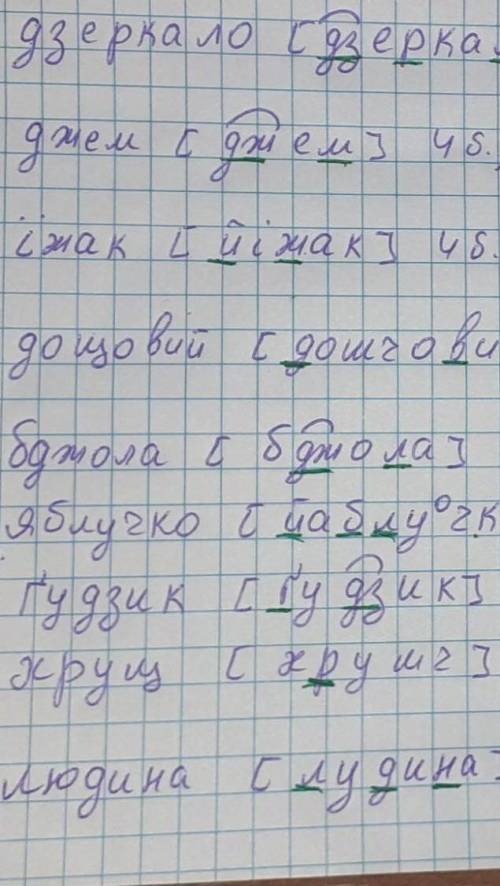 дзеркало [дзерка
джем [джем] 4 б.
їжак [йіжак] 4 б.
дощовий [дошчови
бджола [бджола]
яблучко [йаблучк
ґудзик [ґудзик]
хрущ [хрушч]
людина [лудина]